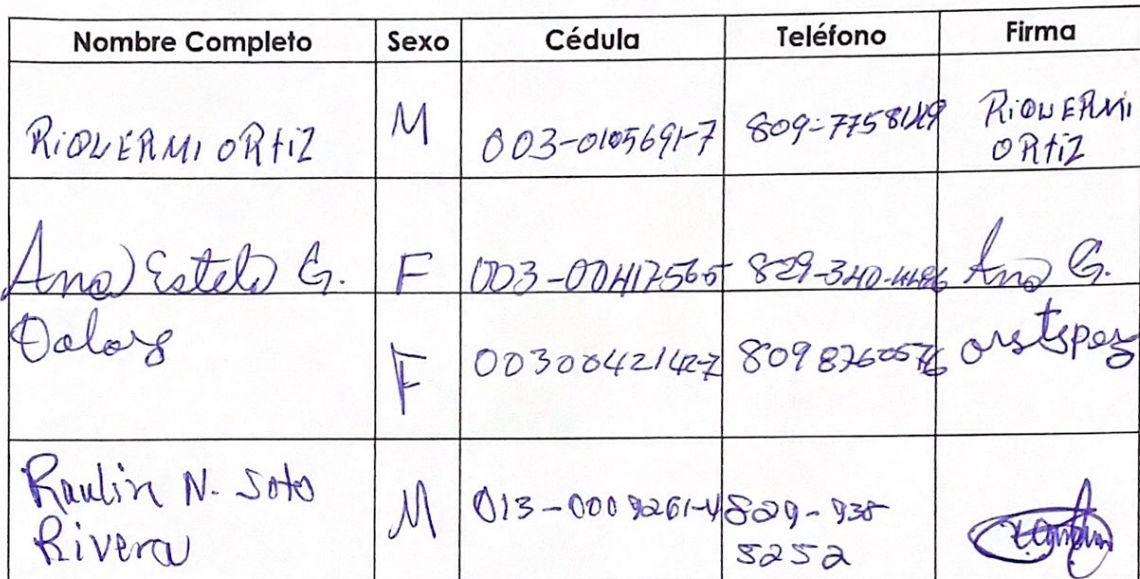 Nombre Completo Sexo Cédula Teléfono Firma
RiQUERMI ORtiZ M 003-0105691-7 809-7758149 RiQUERMI
ORtiZ
Ana Estela G. F 003-00417565 829-340-4486 Ana G.
F 00300421427 8098760576
Raulin N. Soto
Rivera M 013-0009261-4 829-938-
5252